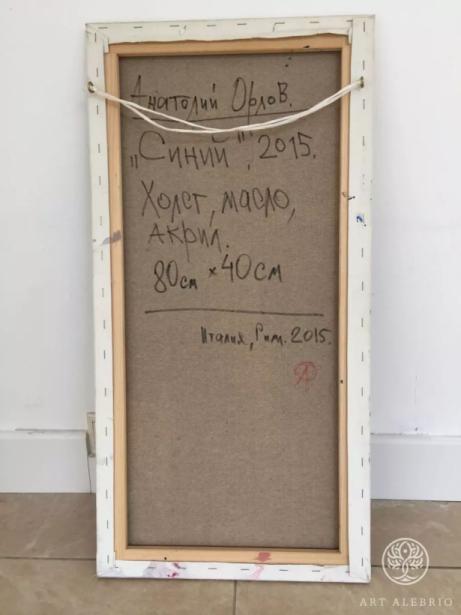 Анатолий Орлов.
„Синий”, 2015.
Холст, масло,
акрил.
80см × 40см
Италия, Рим. 2015.
ART ALEBRIO